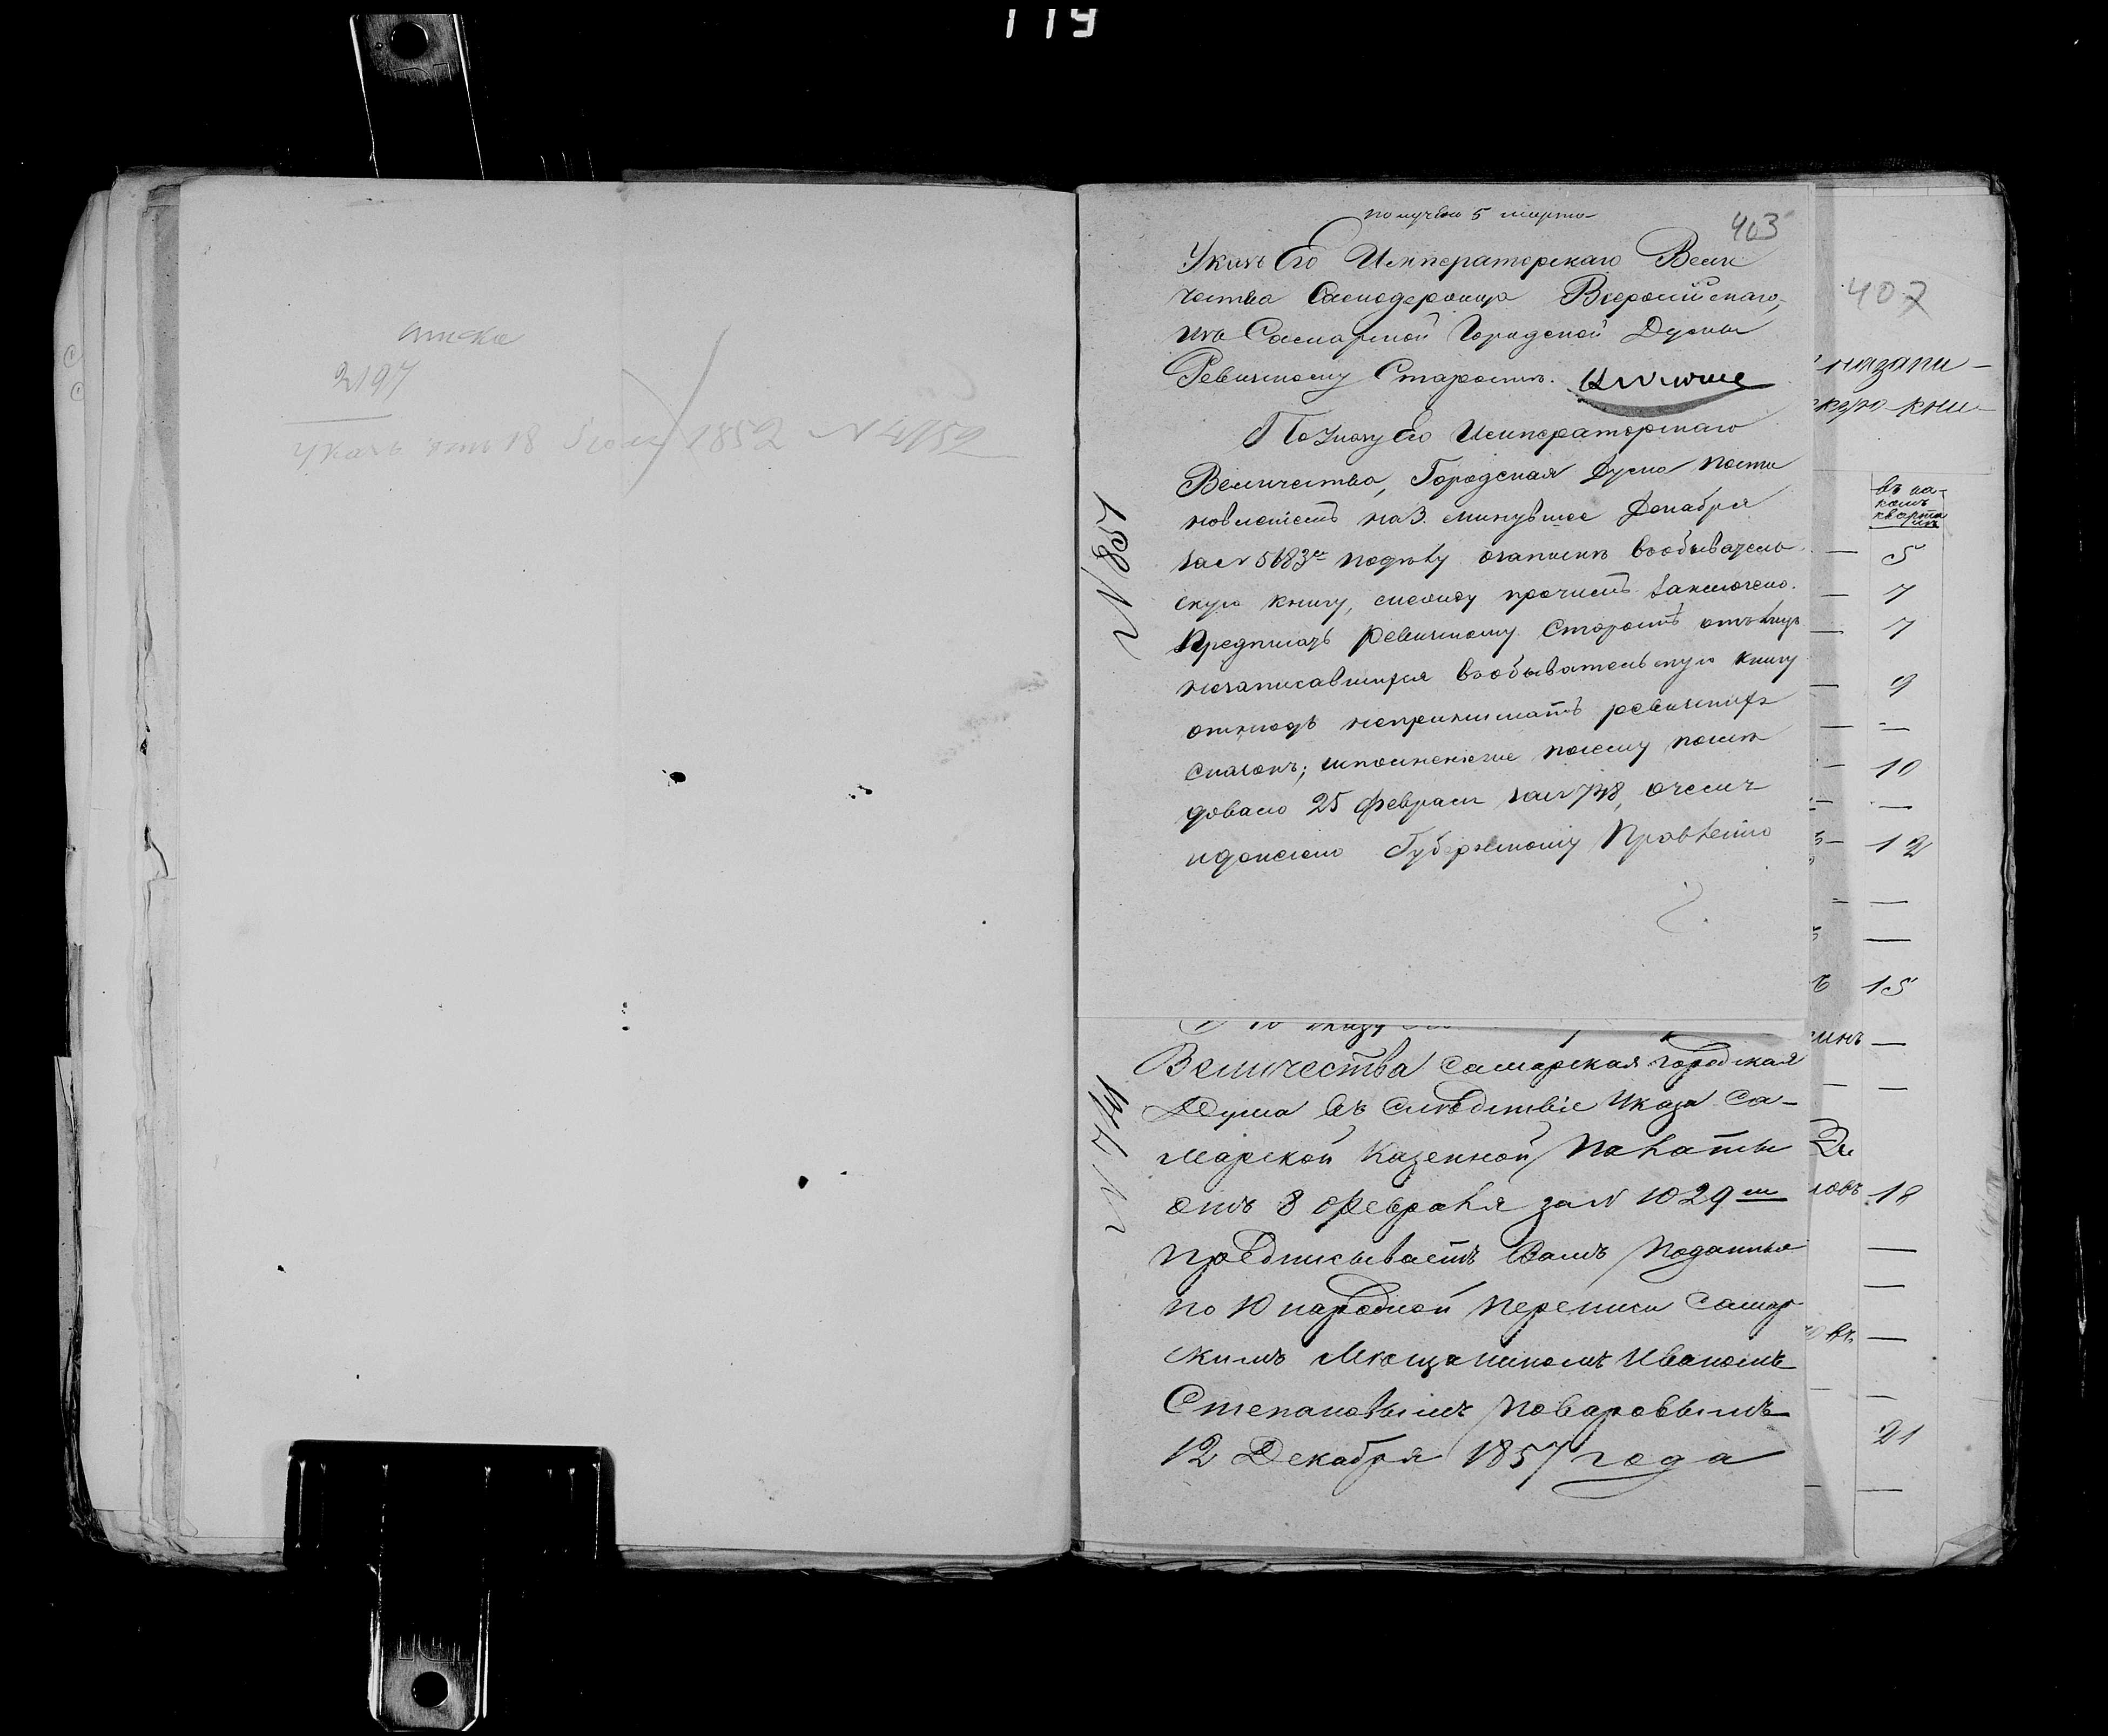 119
2197
Указъ отъ 18 1852 N
получено 5 марта
403
Указъ Его Императорскаго Вели
чества Самодержца Всероссiйскаго,
изъ Самарской Городской Думы
Ревизскому Старостѣ.
По Указу Его Императорскаго
Величества, Городская Дума поста
новленiемъ на 3. минувшее Декабря
за N 5683 подѣлу озаписки вообыватель
скую книгу, между прочимъ заключено.
Предписать Ревизскому Старостѣ отълицъ
незаписавшихся вообывательскую книгу
отнюдь непринимать ревизскихъ
сказокъ; исполненiеже посему послѣ
довало 25 февраля за N 748, очемъ
идонесено Губернскому Правленiю
N 857
Величества Самарская городская
Дума въ Слѣдствiе Указа Са-
марской Казенной Палаты
отъ 8 Февраля за N 1029
предписываетъ Вамъ поданныя
по 10 народной переписи Самар
скимъ Мѣщаниномъ Иваномъ
Степановымъ Поваровымъ
12 Декабря 1857 года
407
скую кни-
въ ка-
комъ
кварта
лѣ
5
7
7
9
10
12
15
18
21